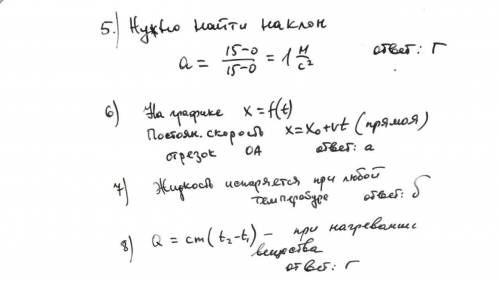 5.) Нужно найти наклон
a = 15-0 / 15-0 = 1 м/с² ответ: Г
6) На графике x = f(t)
Постоян. скорость x = x₀+vt (прямая)
отрезок OA ответ: а
7) Жидкость испаряется при любой
температуре ответ: б
8) Q = cm(t₂-t₁) - при нагревании
вещества
ответ: г